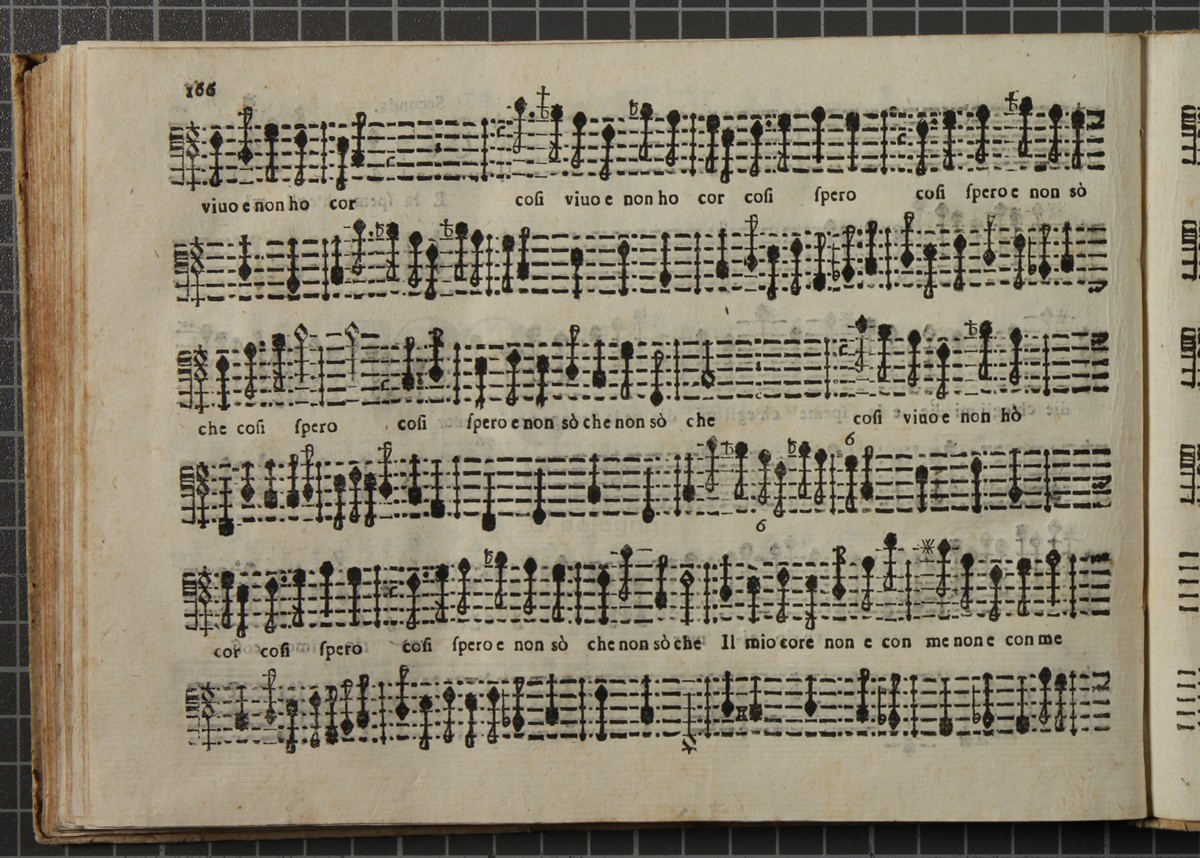 166
viuo e non ho cor cosi viuo e non ho cor cosi spero cosi spero e non sò
che cosi spero cosi spero e non sò che non sò che cosi viuo e non hò
6
6
cor cosi spero cosi spero e non sò che non sò che Il mio core non e con me non e con me